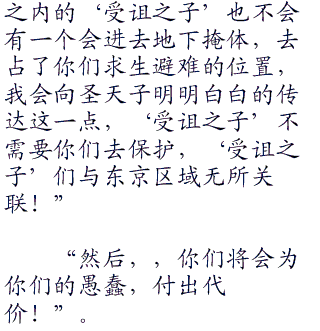 之内的‘受诅之子’也不会
有一个会进去地下掩体，去
占了你们求生避难的位置，
我会向圣天子明明白白的传
达这一点，‘受诅之子’不
需要你们去保护，‘受诅之
子’们与东京区域无所关
联！”
“然后，，你们将会为
你们的愚蠢，付出代
价！”。